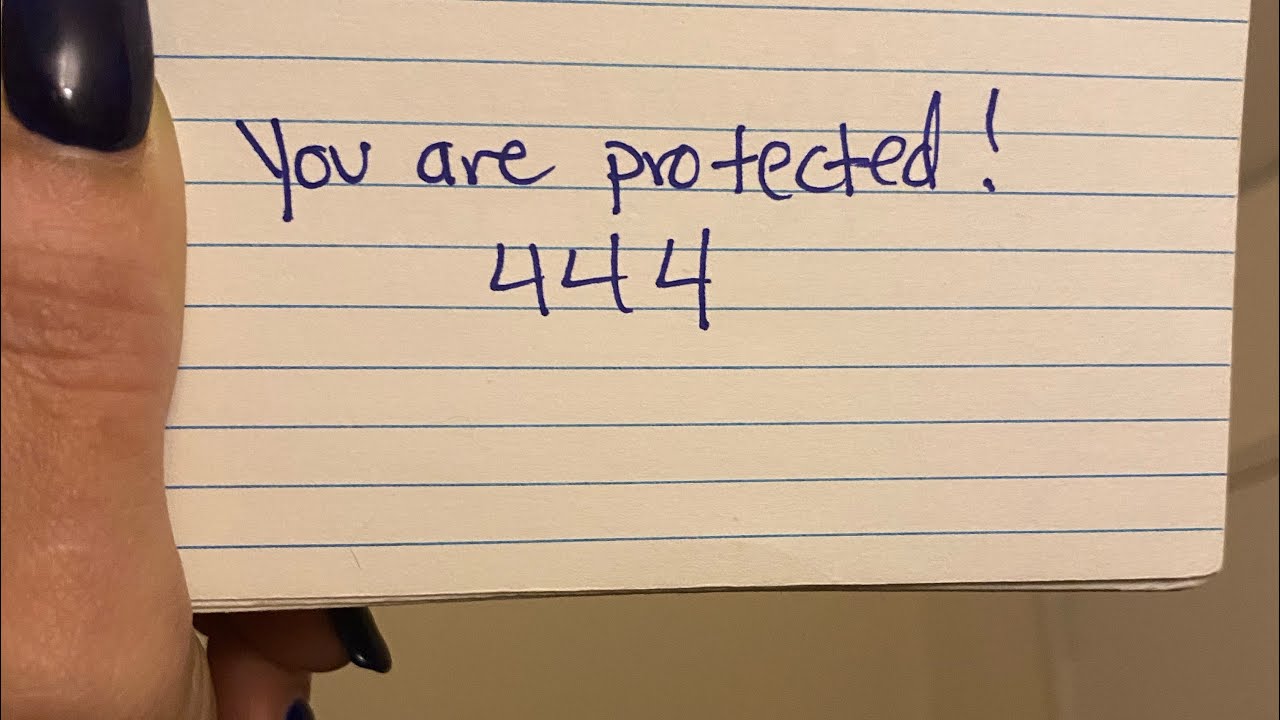 You are protected!
444